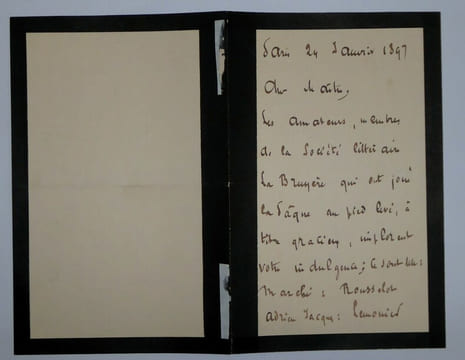 Paris 24 Janvier 1897
Cher Maître,
Les amateurs, membres
de la Société littéraire
La Bruyère qui ont joué
la Pâque au pied levé, à
titre gracieux, implorent
votre indulgence; ce sont
Marché: Rousselot
Adrien Jacque: Lemonier